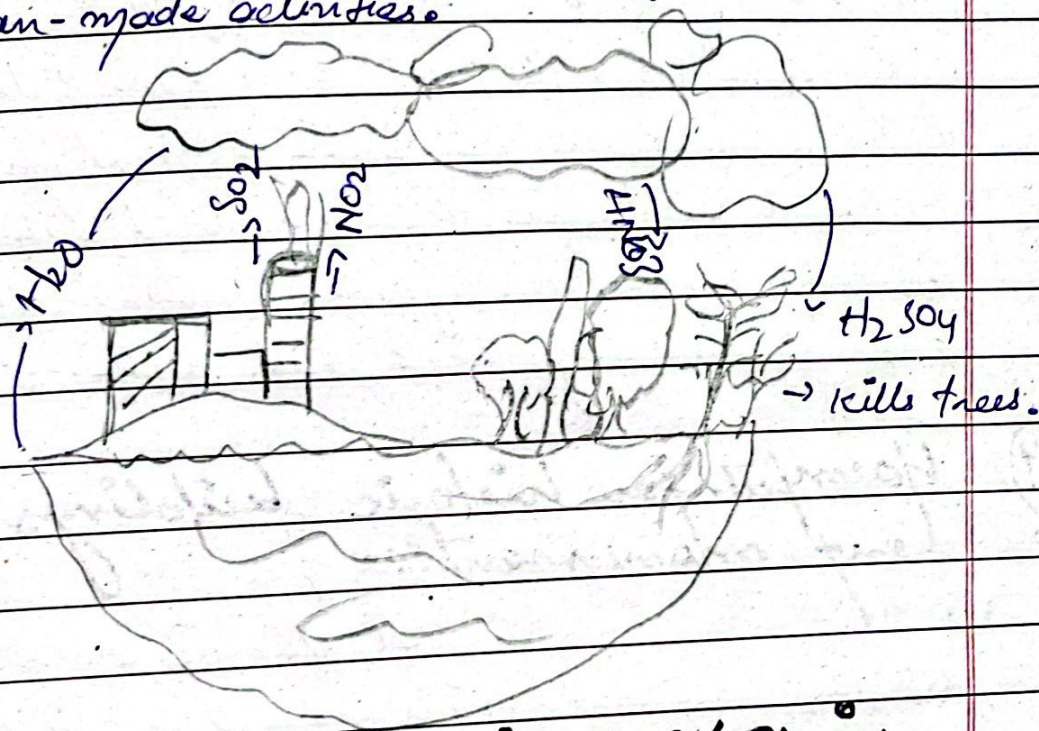 man-made activities.
SO2
NO2
H2O
H2SO4
→ Kills trees.